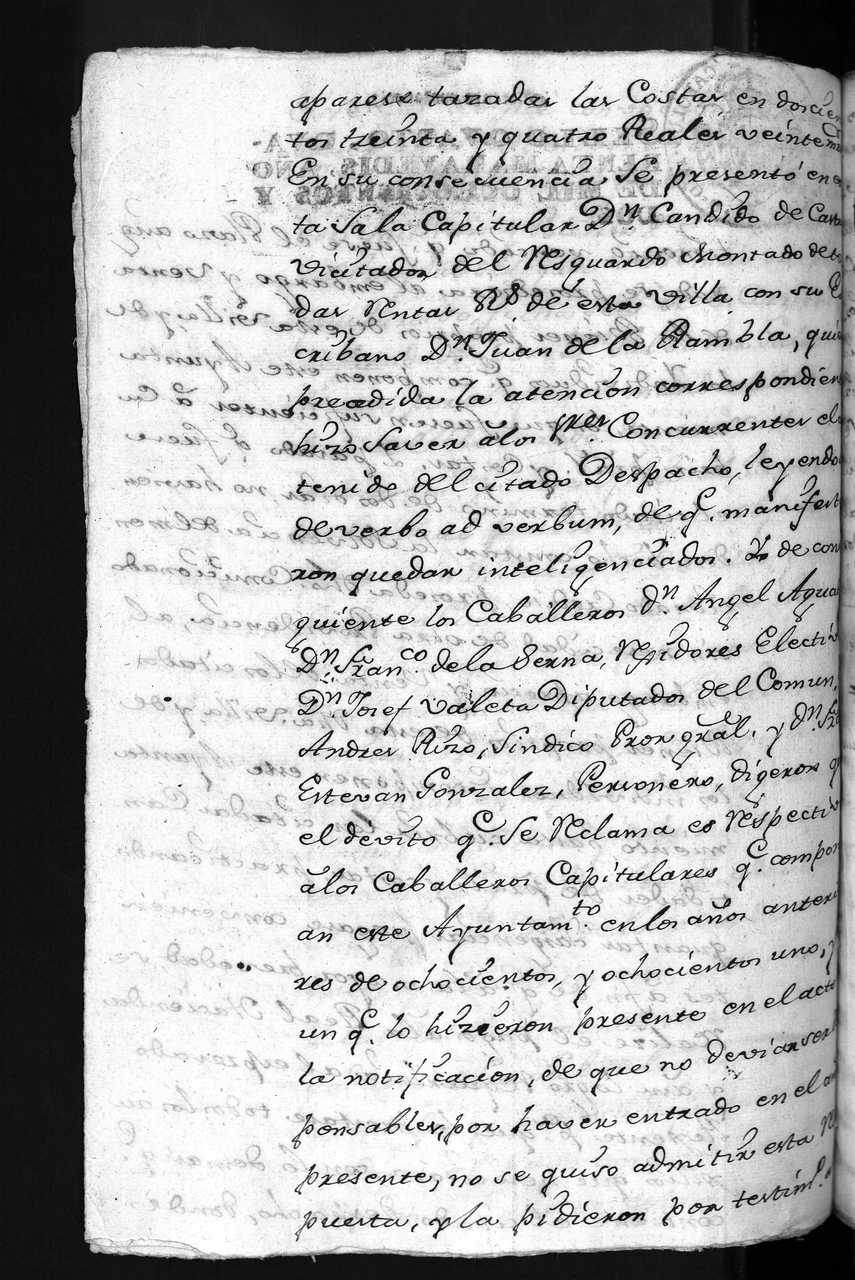 aparese tazadas las Costas en doscien
tos treinta y quatro Reales veinte mrs
En su consecuencia Se presentó en es
ta Sala Capitular Dn. Candido de Cas
Vicitador del Resguardo Montado de
das Rentas Rs. de esta villa con su Es
cribano Dn. Juan de la Rambla, quie
precedida la atencion correspondien
hizo Saver alos Sres. Concurrentes el
tenido del citado Despacho, leyendo
de verbo ad verbum, de qe. manifesta
ron quedar inteligenciados. Y de con
guiente los Caballeros dn. Angel Agua
Dn. Franco. de la Serna, Rejidores Electiv
Dn. Josef Valeta Diputados del Comun,
Andres Rizo, Sindico Pror. gral. y Dn. Fra
Estevan Gonzalez, Personero, digeron q
el devito qe. Se Reclama es Respectiv
álos Caballeros Capitulares qe. compon
an este Ayuntamto. en los años anterio
res de ochocientos, y ochocientos uno, y
un qe. lo hizieron presente en el acto
la notificacion, de que no devian ser
ponsables, por haver entrado en el a
presente, no se quiso admitir esta R
puesta, y la pidieron por testimo.